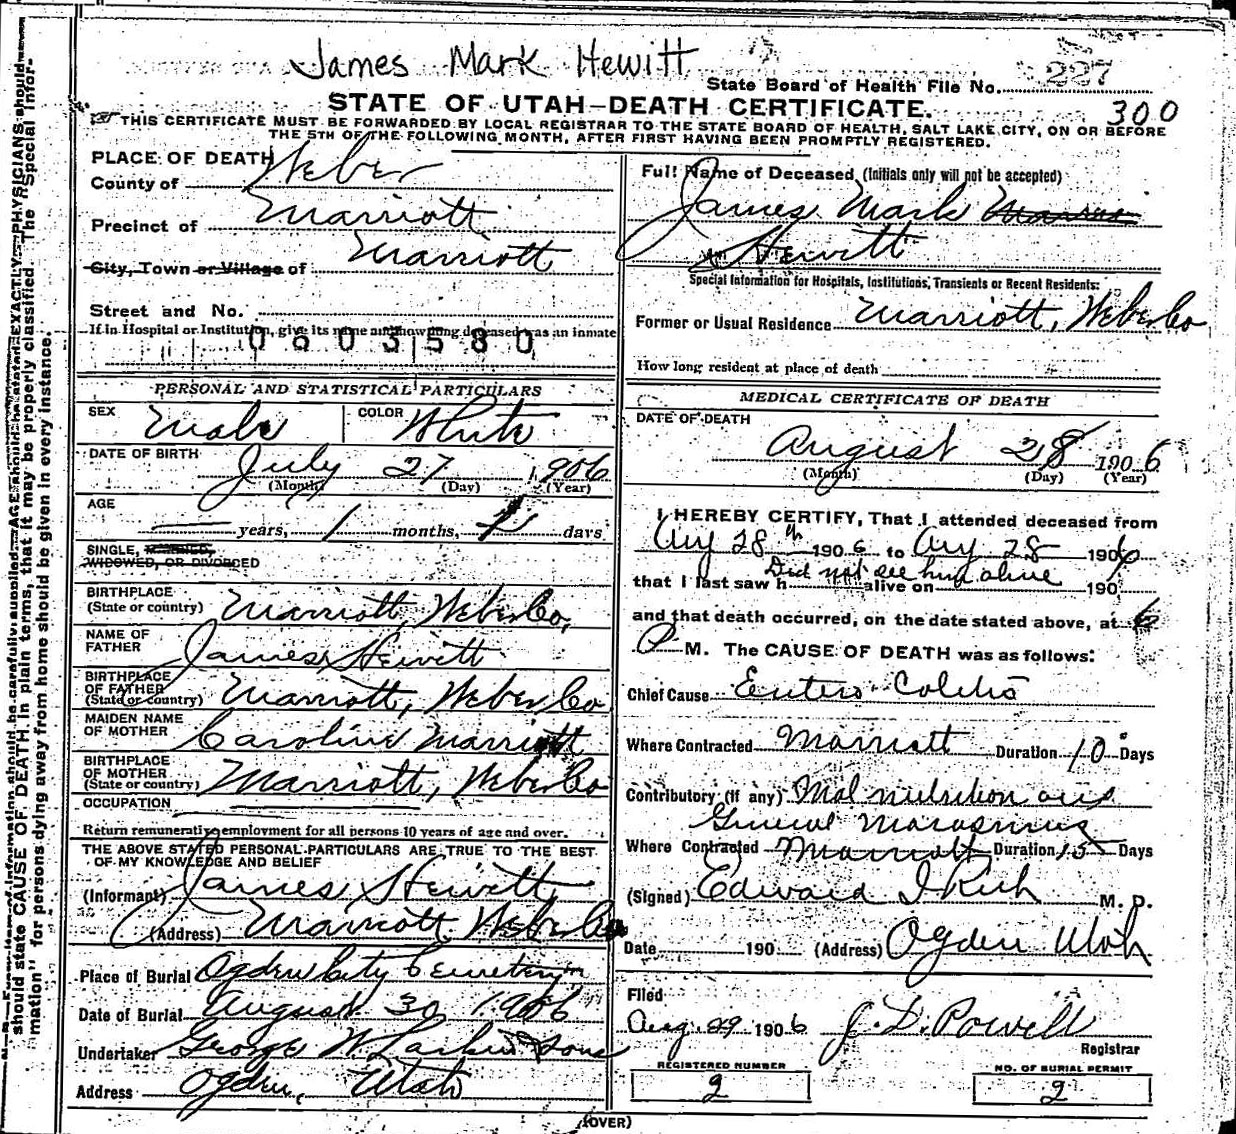 James Mark Hewitt
State Board of Health File No. 227
STATE OF UTAH—DEATH CERTIFICATE.
300
THIS CERTIFICATE MUST BE FORWARDED BY LOCAL REGISTRAR TO THE STATE BOARD OF HEALTH, SALT LAKE CITY, ON OR BEFORE
THE 5TH OF THE FOLLOWING MONTH, AFTER FIRST HAVING BEEN PROMPTLY REGISTERED.
PLACE OF DEATH
County of Weber
Precinct of Marriott
City, Town or Village of Marriott
Street and No.
If in Hospital or Institution, give its name and how long deceased was an inmate
0603580
PERSONAL AND STATISTICAL PARTICULARS
SEX Male COLOR White
DATE OF BIRTH July 27 1906
(Month) (Day) (Year)
AGE
years, 1 months, 1 days
SINGLE, MARRIED,
WIDOWED, OR DIVORCED
BIRTHPLACE
(State or country) Marriott, Weber Co,
NAME OF
FATHER James Hewitt
BIRTHPLACE
OF FATHER
(State or country) Marriott, Weber Co
MAIDEN NAME
OF MOTHER Caroline Marriott
BIRTHPLACE
OF MOTHER
(State or country) Marriott, Weber Co
OCCUPATION
Return remunerative employment for all persons 10 years of age and over.
THE ABOVE STATED PERSONAL PARTICULARS ARE TRUE TO THE BEST
OF MY KNOWLEDGE AND BELIEF
(Informant) James Hewitt
(Address) Marriott Weber Co
Place of Burial Ogden City Cemetery
Date of Burial August 30, 1906
Undertaker George W Larkin & Sons
Address Ogden, Utah
Full Name of Deceased (Initials only will not be accepted)
James Mark
Hewitt
Special Information for Hospitals, Institutions, Transients or Recent Residents:
Former or Usual Residence Marriott, Weber Co
How long resident at place of death
MEDICAL CERTIFICATE OF DEATH
DATE OF DEATH
August 28 1906
(Month) (Day) (Year)
I HEREBY CERTIFY, That I attended deceased from
Aug 28th 1906 to Aug 28 1906
Did not see him alive
that I last saw h alive on 190
and that death occurred, on the date stated above, at 6
P M. The CAUSE OF DEATH was as follows:
Chief Cause Entero Colitis
Where Contracted Marriott Duration 10 Days
Contributory (if any) Mal nutrition and
General Marasmus
Where Contracted Marriott Duration 15 Days
(Signed) Edward I Rich M. D.
Date 190 (Address) Ogden Utah
Filed
Aug. 29 1906 J. D. Powell
Registrar
REGISTERED NUMBER
2
NO. OF BURIAL PERMIT
2
(OVER)
should state CAUSE OF DEATH in plain terms, that it may be properly classified. The "Special Infor-
mation" for persons dying away from home should be given in every instance.